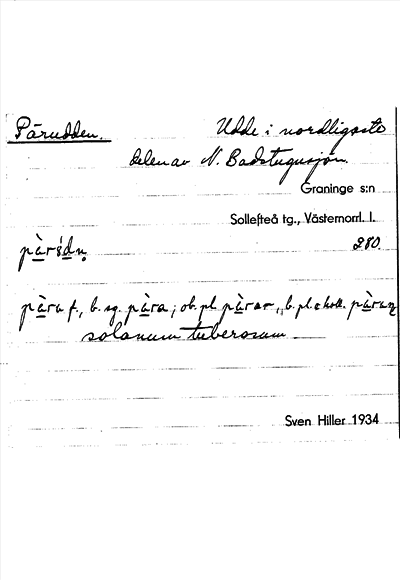 Pärudden. Udde i nordligaste
delen av N. Badstugusjön.
Graninge s:n
Sollefteå tg., Västernorrl. l.
280.
pära f., b. sg. pära; ob. pl. pärar, b. pl. & koll.
solanum tuberosum
Sven Hiller 1934